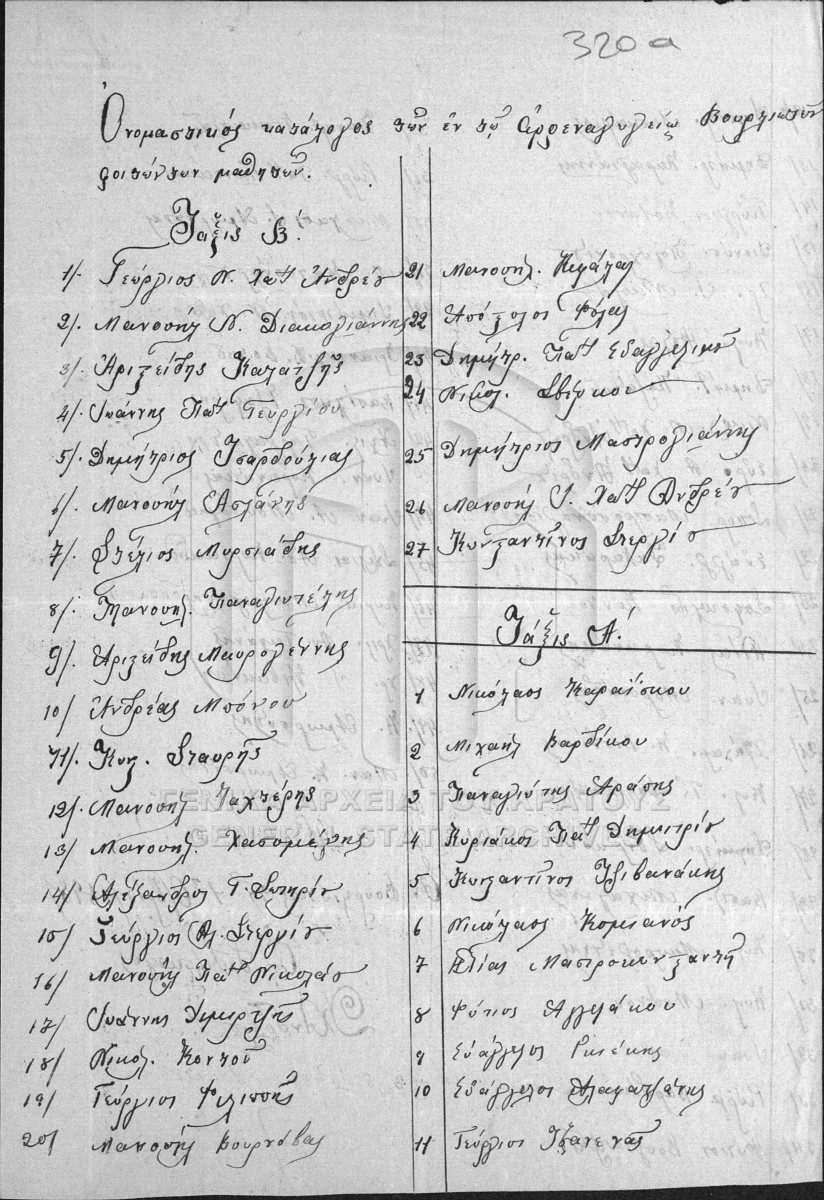 320α
Ὀνομαστικός κατάλογος τῶν ἐν τῷ Ἀρρεναγωγείῳ Βουρλιωτῶν
φοιτώντων μαθητῶν.
Τάξις Β΄.
1/. Γεώργιος Ν. Χατ Ἀνδρέου
2/. Μανουήλ Ν. Διακογιάννης
3/. Ἀριστείδης Καλατζῆς
4/. Ἰωάννης Παπ Γεωργίου
5/. Δημήτριος Τσαρδούλιας
6/. Μανουήλ Ἀσλάνης
7/. Στέλιος Μυρσιάδης
8/. Μανουήλ. Παναγιωτέλης
9/. Ἀριστείδης Μαυρογέννης
10/ Ἀνδρέας Μπόνου
11/. Κων. Σταυρῆς
12/. Μανουήλ Ταχτέρης
13/ Μανουήλ. Χασομέρης
14/ Ἀλέξανδρος Γ. Σωτηρίου
15/ Γεώργιος Ἀλ. Στεργίου
16/ Μανουήλ Παπ Νικολάου
17/ Ἰωάννης Δεμιρτζῆς
18/ Νικολ. Κοντοῦ
19/ Γεώργιος Φιλιππῆς
20/ Μανουήλ Βουρνόβας
21 Μανουήλ. Κεφάλας
22 Ἀπόστολος Φόλας
23 Δημήτρ. Παπ Εὐαγγελινοῦ
24 Νικολ. Σβίρκου
25 Δημήτριος Μαστρογιάννης
26 Μανουήλ Ι. Χατ Ἀνδρέου
27 Κωνσταντῖνος Στεργίου
Τάξις Α΄.
1 Νικόλαος Καραΐσκου
2 Μιχαήλ Βαρδίκου
3 Παναγιώτης Ἀράπης
4 Κυριάκος Παπ Δημητρίου
5 Κωνσταντῖνος Τζιβανάκης
6 Νικόλαος Κομιανός
7 Ἠλίας Μαστροκωνσταντῆ
8 Φώτιος Ἀγγελάκου
9 Εὐάγγελος Γκιέκης
10 Εὐάγγελος Ἀλαφατζιάτης
11 Γεώργιος Τζανενᾶς
ΓΕΝΙΚΑ ΑΡΧΕΙΑ ΤΟΥ ΚΡΑΤΟΥΣ
GENERAL STATE ARCHIVES